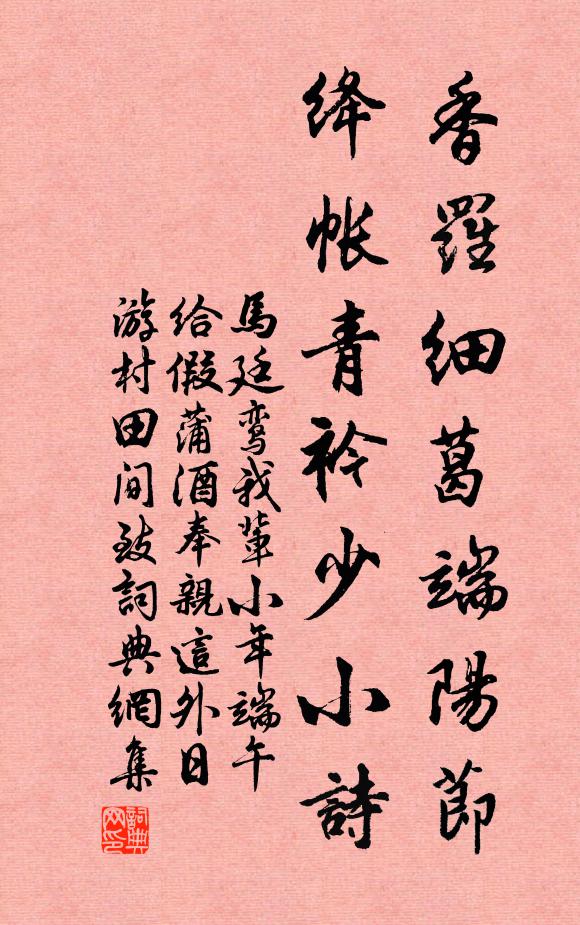 香羅細葛端陽節
絳帳青衿少小詩
馬廷鸾我輩小年端午
給假蒲酒奉親這外日
游村田間致詞典網集
詞典网印